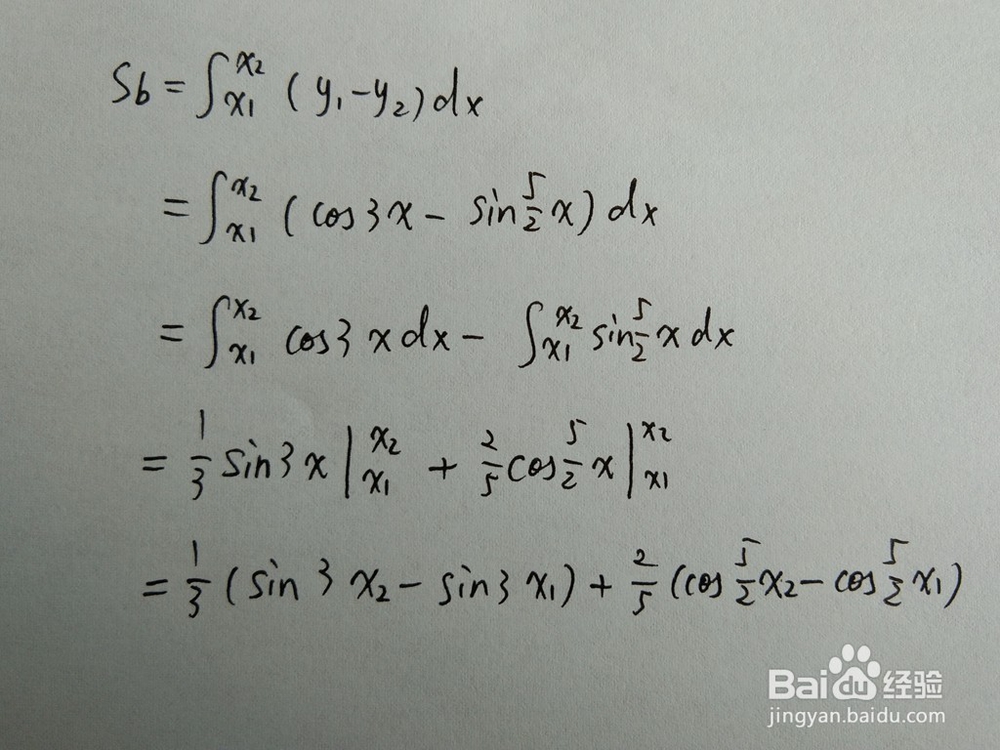 Sb = ∫_{x1}^{x2} (y₁-y₂)dx
= ∫_{x1}^{x2} (cos3x - sin5/2x)dx
= ∫_{x1}^{x2} cos3xdx - ∫_{x1}^{x2} sin5/2xdx
= 1/3 sin3x|_{x1}^{x2} + 2/5 cos5/2x|_{x1}^{x2}
= 1/3(sin3x₂ - sin3x₁) + 2/5(cos5/2x₂ - cos5/2x₁)
Baidu经验
jingyan.baidu.com